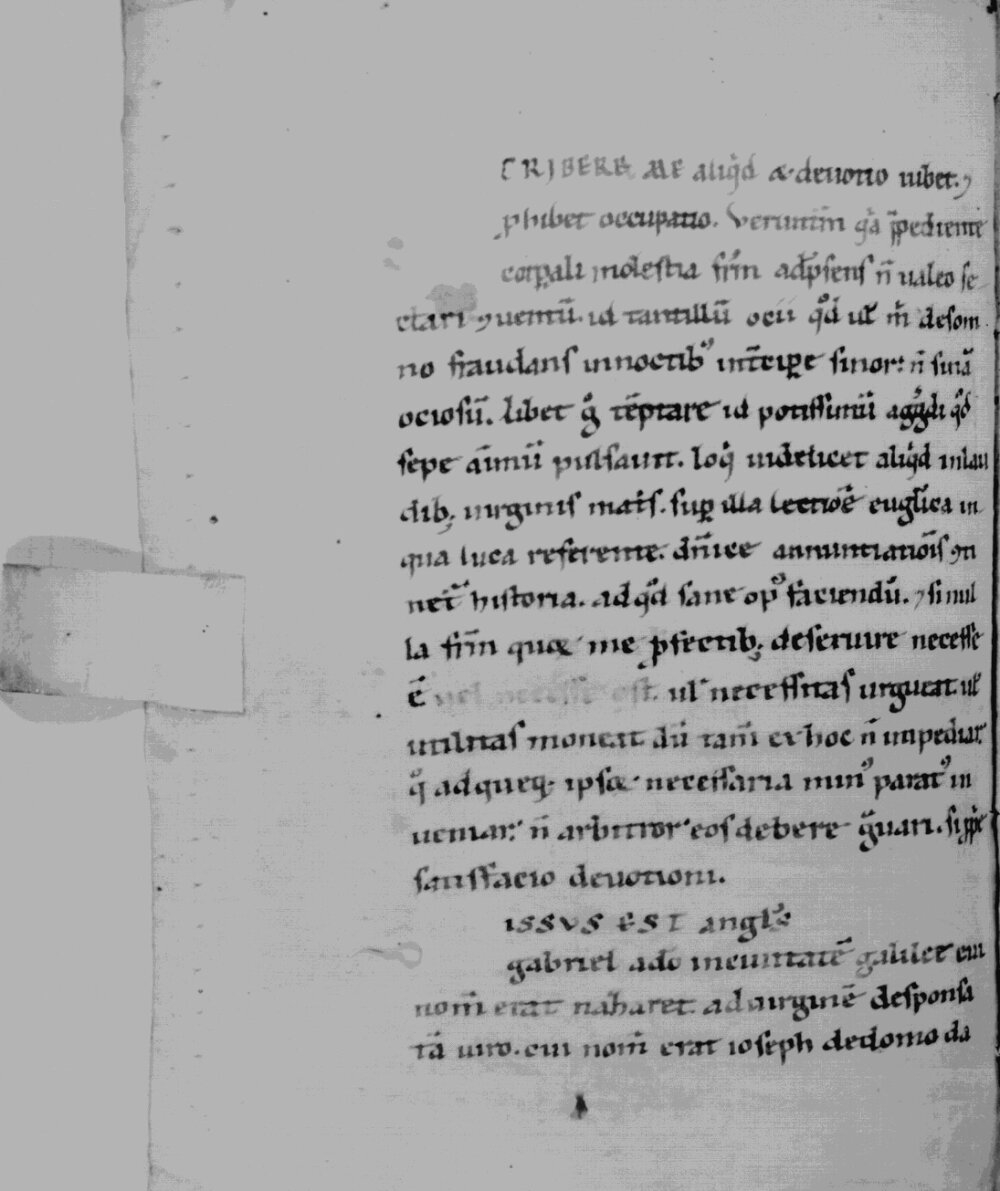 CRIBERE ME aliqͥd &̷ deuotio iubet. ⁊
ꝓhibet occupatio. Verumtm̄ qꝛa p̄pediente
corꝑali molestia frm̄ ad p̄sens n̄ ualeo se
ctari ⁊uentū. id tantillū ocii qͦd ul̓ m̓ de som
no fraudans in noctibꝰ int̄ciꝑe sinor: n̄ sinā
ociosū. libet gͦ tēptare id potissimū aggͤdi qͦd
sepe aīmū pulsauit. loqͥ uidelicet aliqͥd in lau
dib; uirginis mat̓s. suꝑ illa lectiōe euglīca in
qua luca referente. dn̄ice annuntiatiōis ⁊ti
net̓ historia. ad qͦd sane opꝰ faciendū. ⁊si nul
la frm̄ quoꝝ me ꝓfectib; deseruire necesse
ē uel necesse est. ul̓ necessitas urgueat. ul̓
utilitas moneat dū tam̄ ex hoc n̄ impediar.
qͦ ad queq; ipsoꝝ necessaria minꝰ paratꝰ in
ueniar: n̄ arbitror eos debere gͣuari. si ꝓpͥe
satisfacio deuotioni.
ISSVS EST anglꝰs
gabriel a dō in ciuitatē galilee cui
nom̄ erat nazharet. ad uirginē desponsa
tā uiro. cui nom̄ erat ioseph de domo da